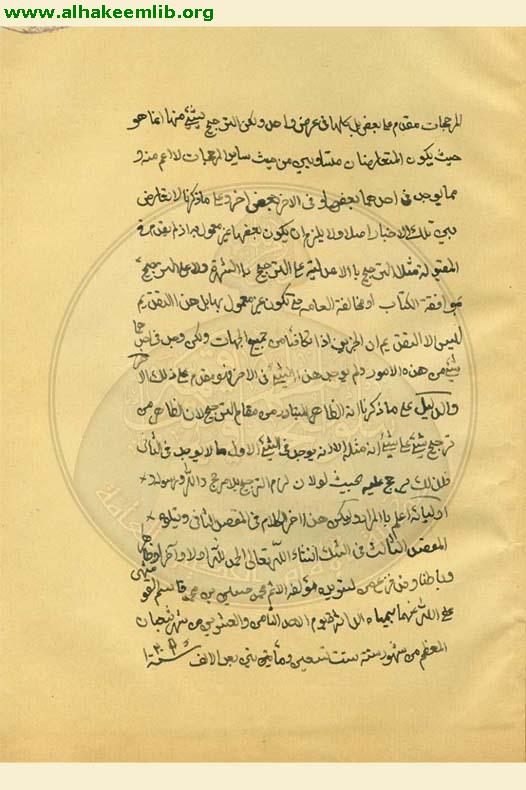 www.alhakeemlib.org
المرجحات مقدم على بعض بل كلها في عرض واحد ولكن الترجيح بشيء منها انما هو
حيث يكون المتعارضان متساويين من حيث ساير المرجحات لا اعم منه و
مما يوجد في احدهما بعضها وفي الاخر بعض اخر وعلى ما ذكرنا لا تعارض
بين تلك الاخبار اصلا ولا يلزم ان يكون بعضها غير معمول به اذ لم يقل في
المقبولة مثلا الترجيح بالاعدلية على الترجيح بالشهرة ولا على الترجيح
بموافقة الكتاب او مخالفة العامة حتى تكون غير معمول بها بل هذا التقديم
ليس الا التقديم ان الخبرين اذا تكافئا من جميع الجهات ولكن وجد في احدهما
شيء من هذه الامور ولم يوجد هذا الشيء في الاخر فهو يقدم على ذلك الاخر
والدليل على ما ذكرنا انه الظاهر المتبادر من مقام الترجيح لان الظاهر من
ترجيح شيء على شيء انه مثله الا انه يوجد في الشيء الاول ما لا يوجد في الثاني
فلذلك يرجح عليه بحيث لولاه لزم الترجيح بلا مرجح والله ورسوله
واوليائه اعلم بالمراد وليكن هذا اخر الكلام في المقصد الثاني ويتلوه
المقصد الثالث في الشك انشاء الله تعالى الحمد لله اولا واخرا وظاهرا
وباطنا وقد فرغ من تسويده مؤلفه الاثم محمد حسين بن محمد قاسم القمشهي
عفى الله عنهما بمحمد واله الطاهرين يوم الاحد الثامن والعشرين من شهر شعبان
المعظم من شهور سنة ست تسعين ومأتين بعد الالف سنة